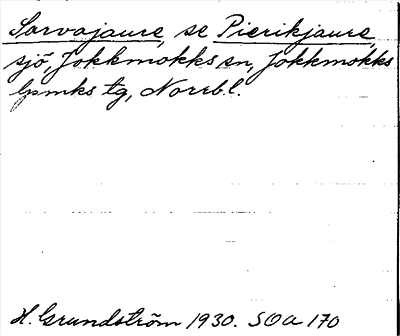 Sarvajaure, se Pierikjaure,
sjö, Jokkmokks sn, Jokkmokks
lpmks tg, Norrb. l.
H. Grundström 1930. SOA 170